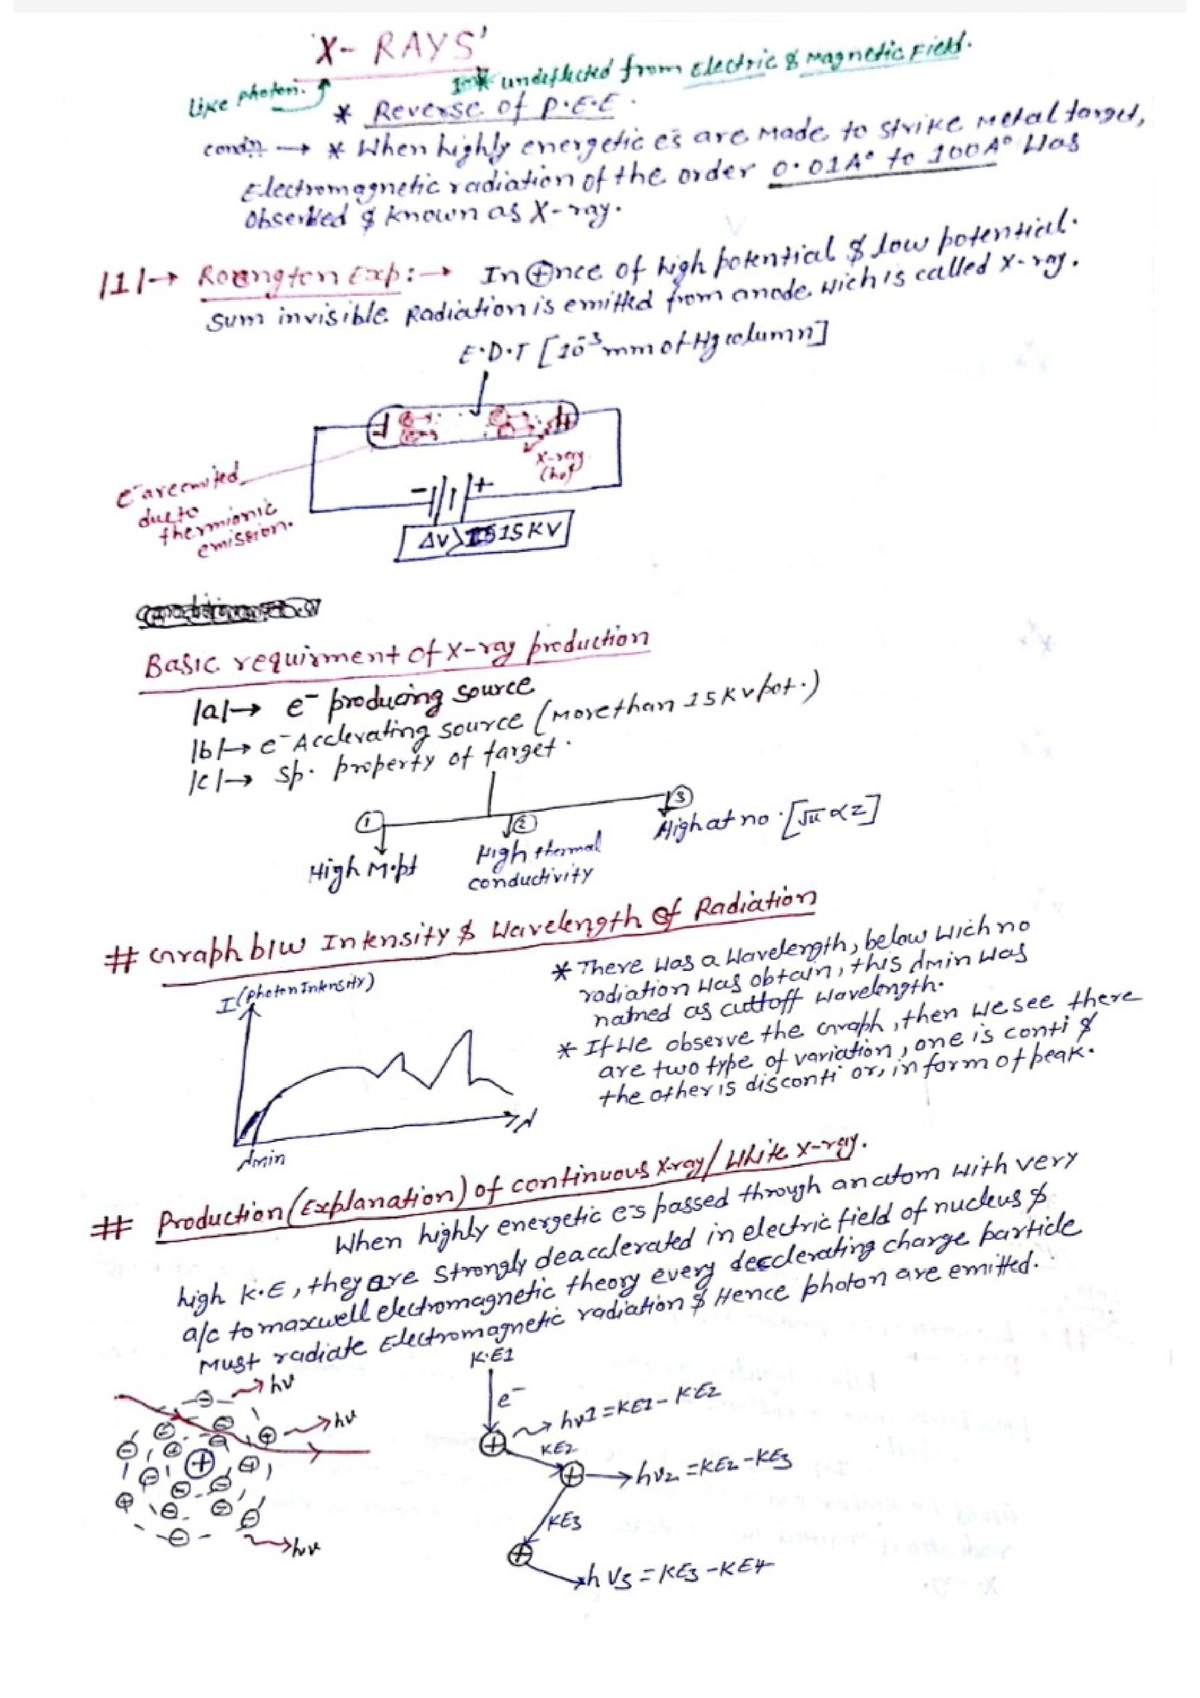 'X- RAYS'
Like photon.
undeflected from Electric & Magnetic Field.
* Reverse of P.E.E.
condn → * When highly energetic e⁻s are made to strike metal target,
Electromagnetic radiation of the order 0.01A° to 100A° was
Observed & known as X-ray.
|1|→ Roengton Exp:→ In ⊕nce of high potential & low potential.
sum invisible Radiation is emitted from anode wich is called x-ray.
E.D.T [10⁻³ mm of Hg column]
X-ray
(hν)
e⁻ are emited
due to
thermionic
emission.
- +
ΔV > 15 KV
Basic requirment of X-ray production
|a|→ e⁻ producing source
|b|→ e⁻ Acclerating source (More than 15 KV pot.)
|c|→ sp. property of target.
① ② ③
High M.pt
High thermal
conductivity
High at no. [√ν ∝ Z]
# Graph b/w Intensity & Wavelength of Radiation
I (photon Intensity)
λ
λmin
* There was a Wavelength, below wich no
radiation was obtain, this λmin was
named as cuttoff wavelength.
* If we observe the Graph, then we see there
are two type of variation, one is conti &
the other is disconti or, in form of peak.
# Production (Explanation) of continuous X-ray / White x-ray.
When highly energetic e⁻s passed through an atom with very
high K.E, they are strongly deacclerated in electric field of nucleus &
a/c to maxwell electromagnetic theory every decclerating charge particle
Must radiate Electromagnetic radiation & Hence photon are emitted.
hν
hν
hν
K.E1
e⁻
hν1 = KE1 - KE2
KE2
hν2 = KE2 - KE3
KE3
hν3 = KE3 - KE4